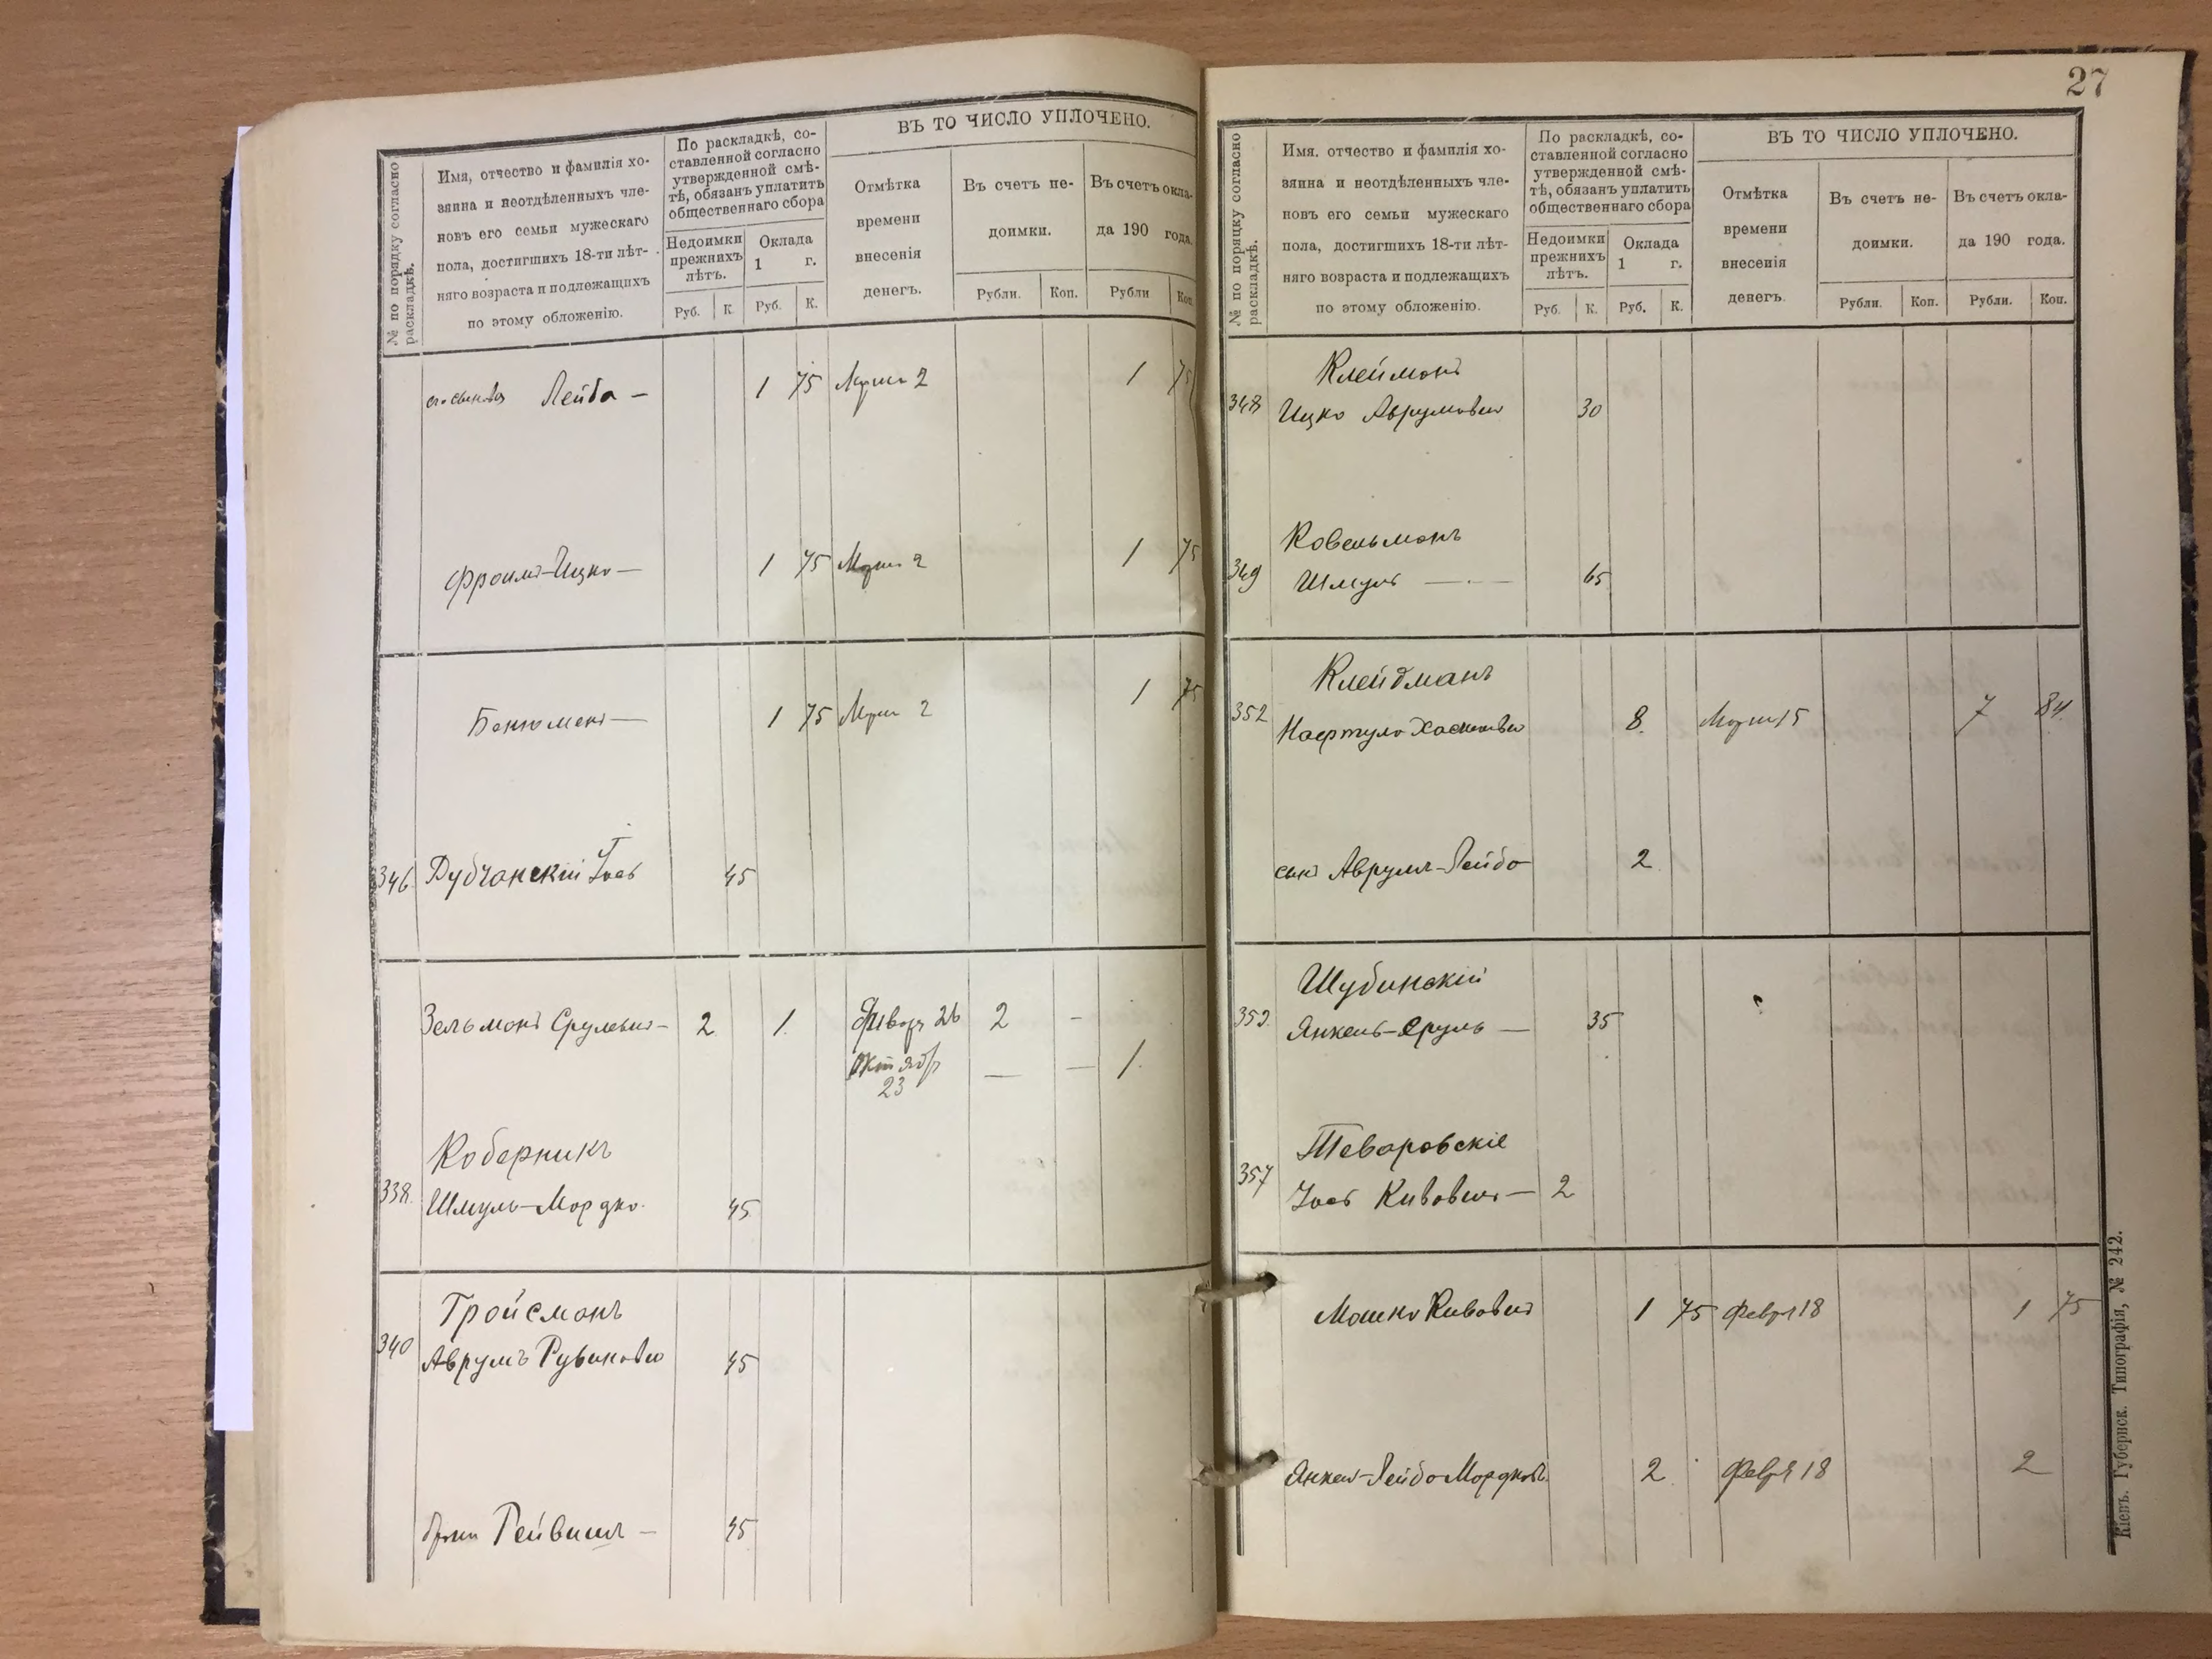 ВЪ ТО ЧИСЛО УПЛОЧЕНО.
№ по порядку согласно раскладкѣ.
Имя, отчество и фамилія хо-
зяина и неотдѣленныхъ чле-
новъ его семьи мужескаго
пола, достигшихъ 18-ти лѣт-
няго возраста и подлежащихъ
по этому обложенію.
По раскладкѣ, со-
ставленной согласно
утвержденной смѣ-
тѣ, обязанъ уплатить
общественнаго сбора
Недоимки
прежнихъ
лѣтъ.
Оклада
1 г.
Руб. К. Руб. К.
Отмѣтка
времени
внесенія
денегъ.
Въ счетъ не-
доимки.
Рубли. Коп.
Въ счетъ окла-
да 190 года.
Рубли Коп.
Лейба — 1 75 2 1 75
Фроимъ-Ицко — 1 75 2 1 75
1 75 2 1 75
346 Дубчанскій Іось 45
Зельманъ Срулевъ — 2 1. 26 2 —
Октябр — — 1.
23
Коберникъ
338. Шмуль-Мордко. 45
Гройсманъ
340 Аврумъ Рувинови 45
45
27
ВЪ ТО ЧИСЛО УПЛОЧЕНО.
№ по порядку согласно раскладкѣ.
Имя. отчество и фамилія хо-
зяина и неотдѣленныхъ чле-
новъ его семьи мужескаго
пола, достигшихъ 18-ти лѣт-
няго возраста и подлежащихъ
по этому обложенію.
По раскладкѣ, со-
ставленной согласно
утвержденной смѣ-
тѣ, обязанъ уплатить
общественнаго сбора
Недоимки
прежнихъ
лѣтъ.
Оклада
1 г.
Руб. К. Руб. К.
Отмѣтка
времени
внесенія
денегъ.
Въ счетъ не-
доимки.
Рубли. Коп.
Въ счетъ окла-
да 190 года.
Рубли. Коп.
Клейманъ
348 Ицко Аврумови 30
Ковельманъ
349 Шмуль — 65
Клейдманъ
352 Нафтула 8. 15 7 84
сынъ Аврумъ-Лейба 2
Шубинскій
353. Янкель-Сруль — 35
Теваровскіе
357 Іось Кивовичъ — 2
Мошко Кивовичъ 1 75 Февр 18 1 75
Янкел-Лейба Мордков. 2 Февр 18 2
Кіевъ. Губернск. Типографія, № 242.